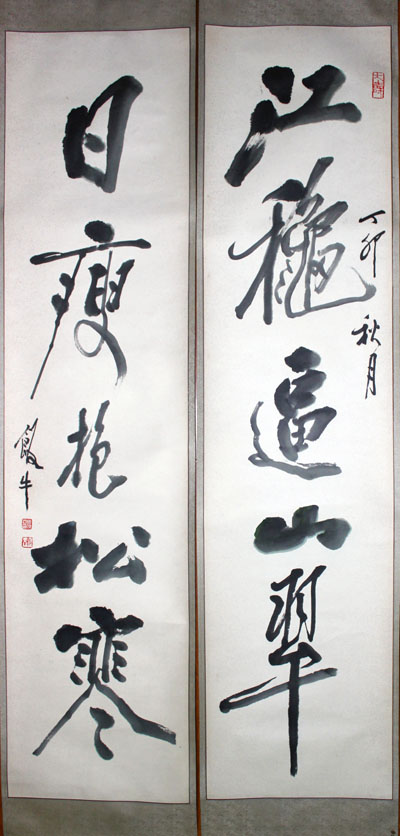 江穐逼山翠
丁卯秋月
日瘦抱松寒
牛